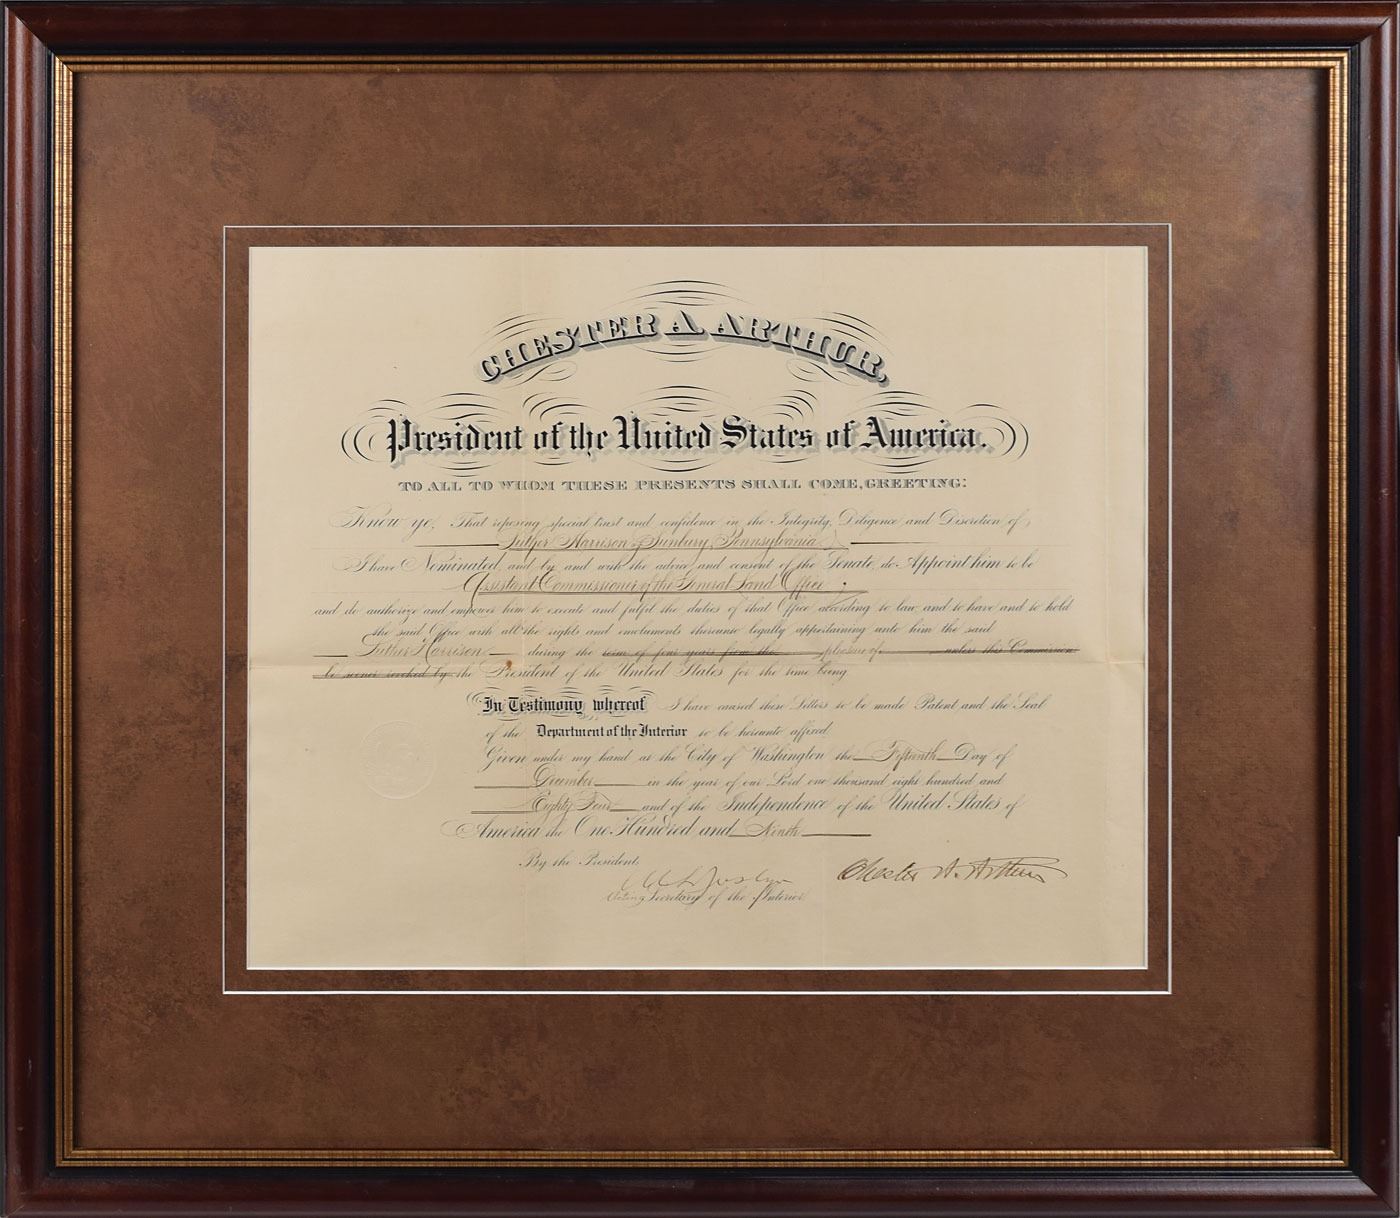 CHESTER A. ARTHUR,
President of the United States of America.
TO ALL TO WHOM THESE PRESENTS SHALL COME, GREETING:
Know ye, That reposing special trust and confidence in the Integrity, Diligence and Discretion of
Luther Harrison of Sunbury, Pennsylvania
I have Nominated, and by and with the advice and consent of the Senate, do Appoint him to be
Assistant Commissioner of the General Land Office;
and do authorize and empower him to execute and fulfil the duties of that Office according to law and to have and to hold
the said Office with all the rights and emoluments thereunto legally appertaining unto him the said
Luther Harrison during the term of four years from the pleasure of unless this Commission
be sooner revoked by the President of the United States for the time being
In Testimony whereof I have caused these Letters to be made Patent and the Seal
of the Department of the Interior to be hereunto affixed
Given under my hand at the City of Washington the Fifteenth Day of
December in the year of our Lord one thousand eight hundred and
Eighty Four and of the Independence of the United States of
America the One Hundred and Ninth
By the President:
Chester A. Arthur
Joslyn
Acting Secretary of the Interior